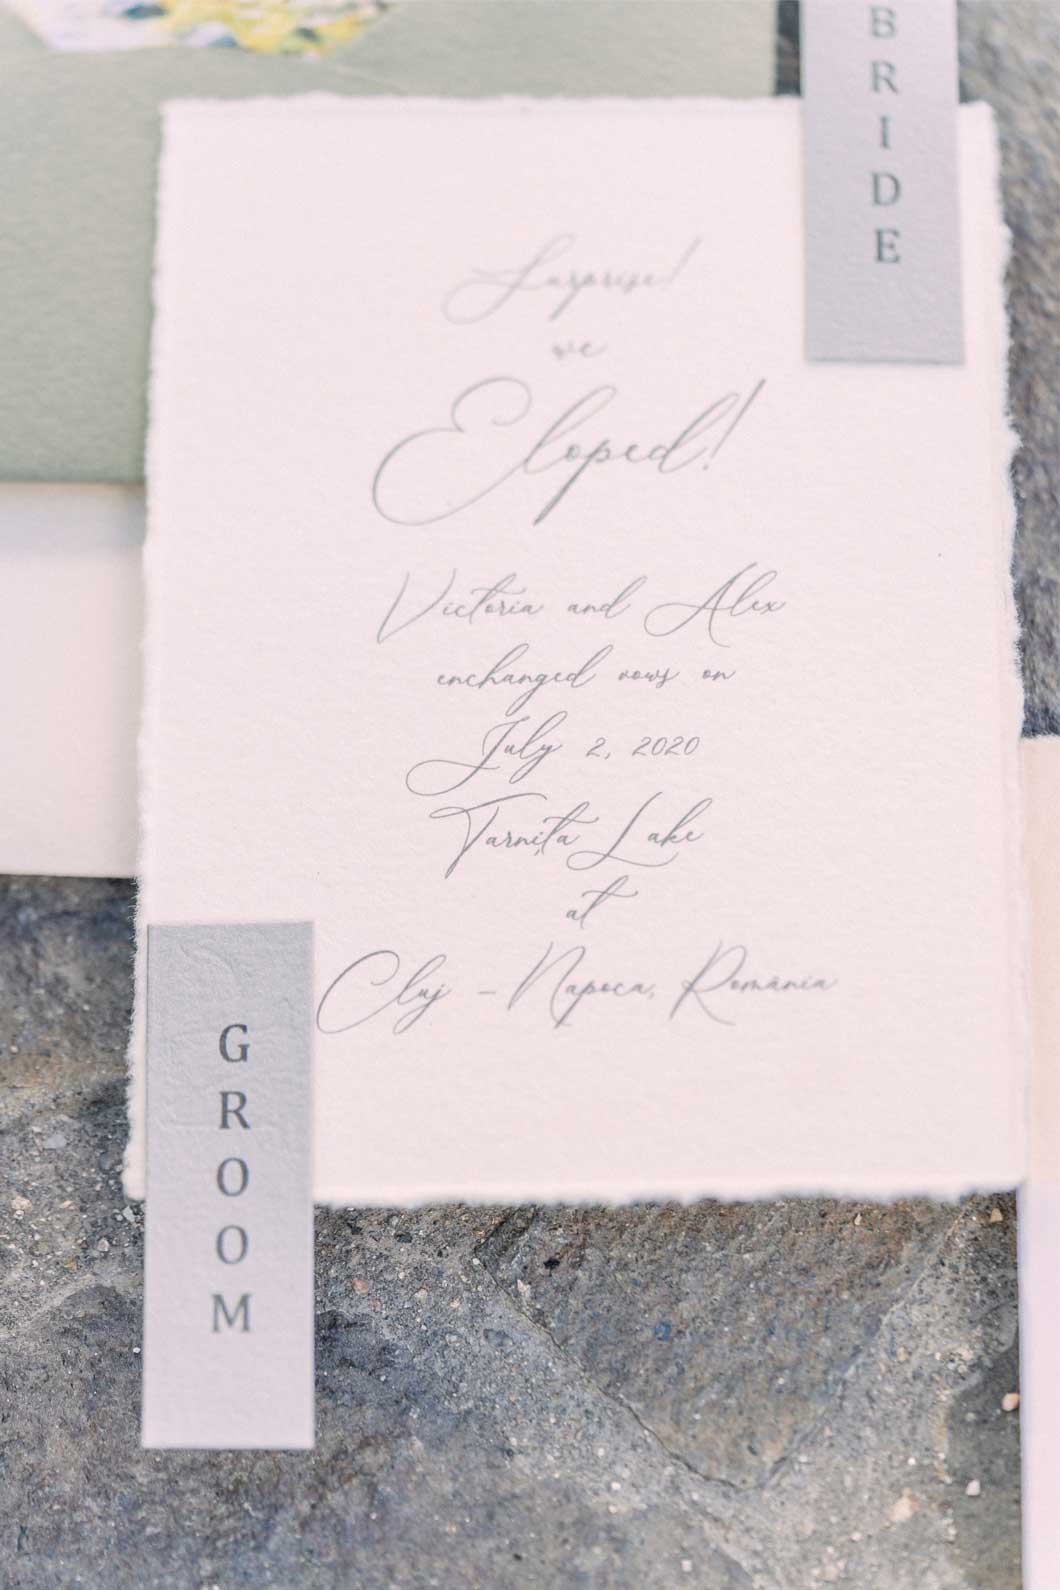 BRIDE
Surprise!
we
Eloped!
Victoria and Alex
enchanged vows on
July 2, 2020
Tarnița Lake
at
Cluj - Napoca, România
GROOM